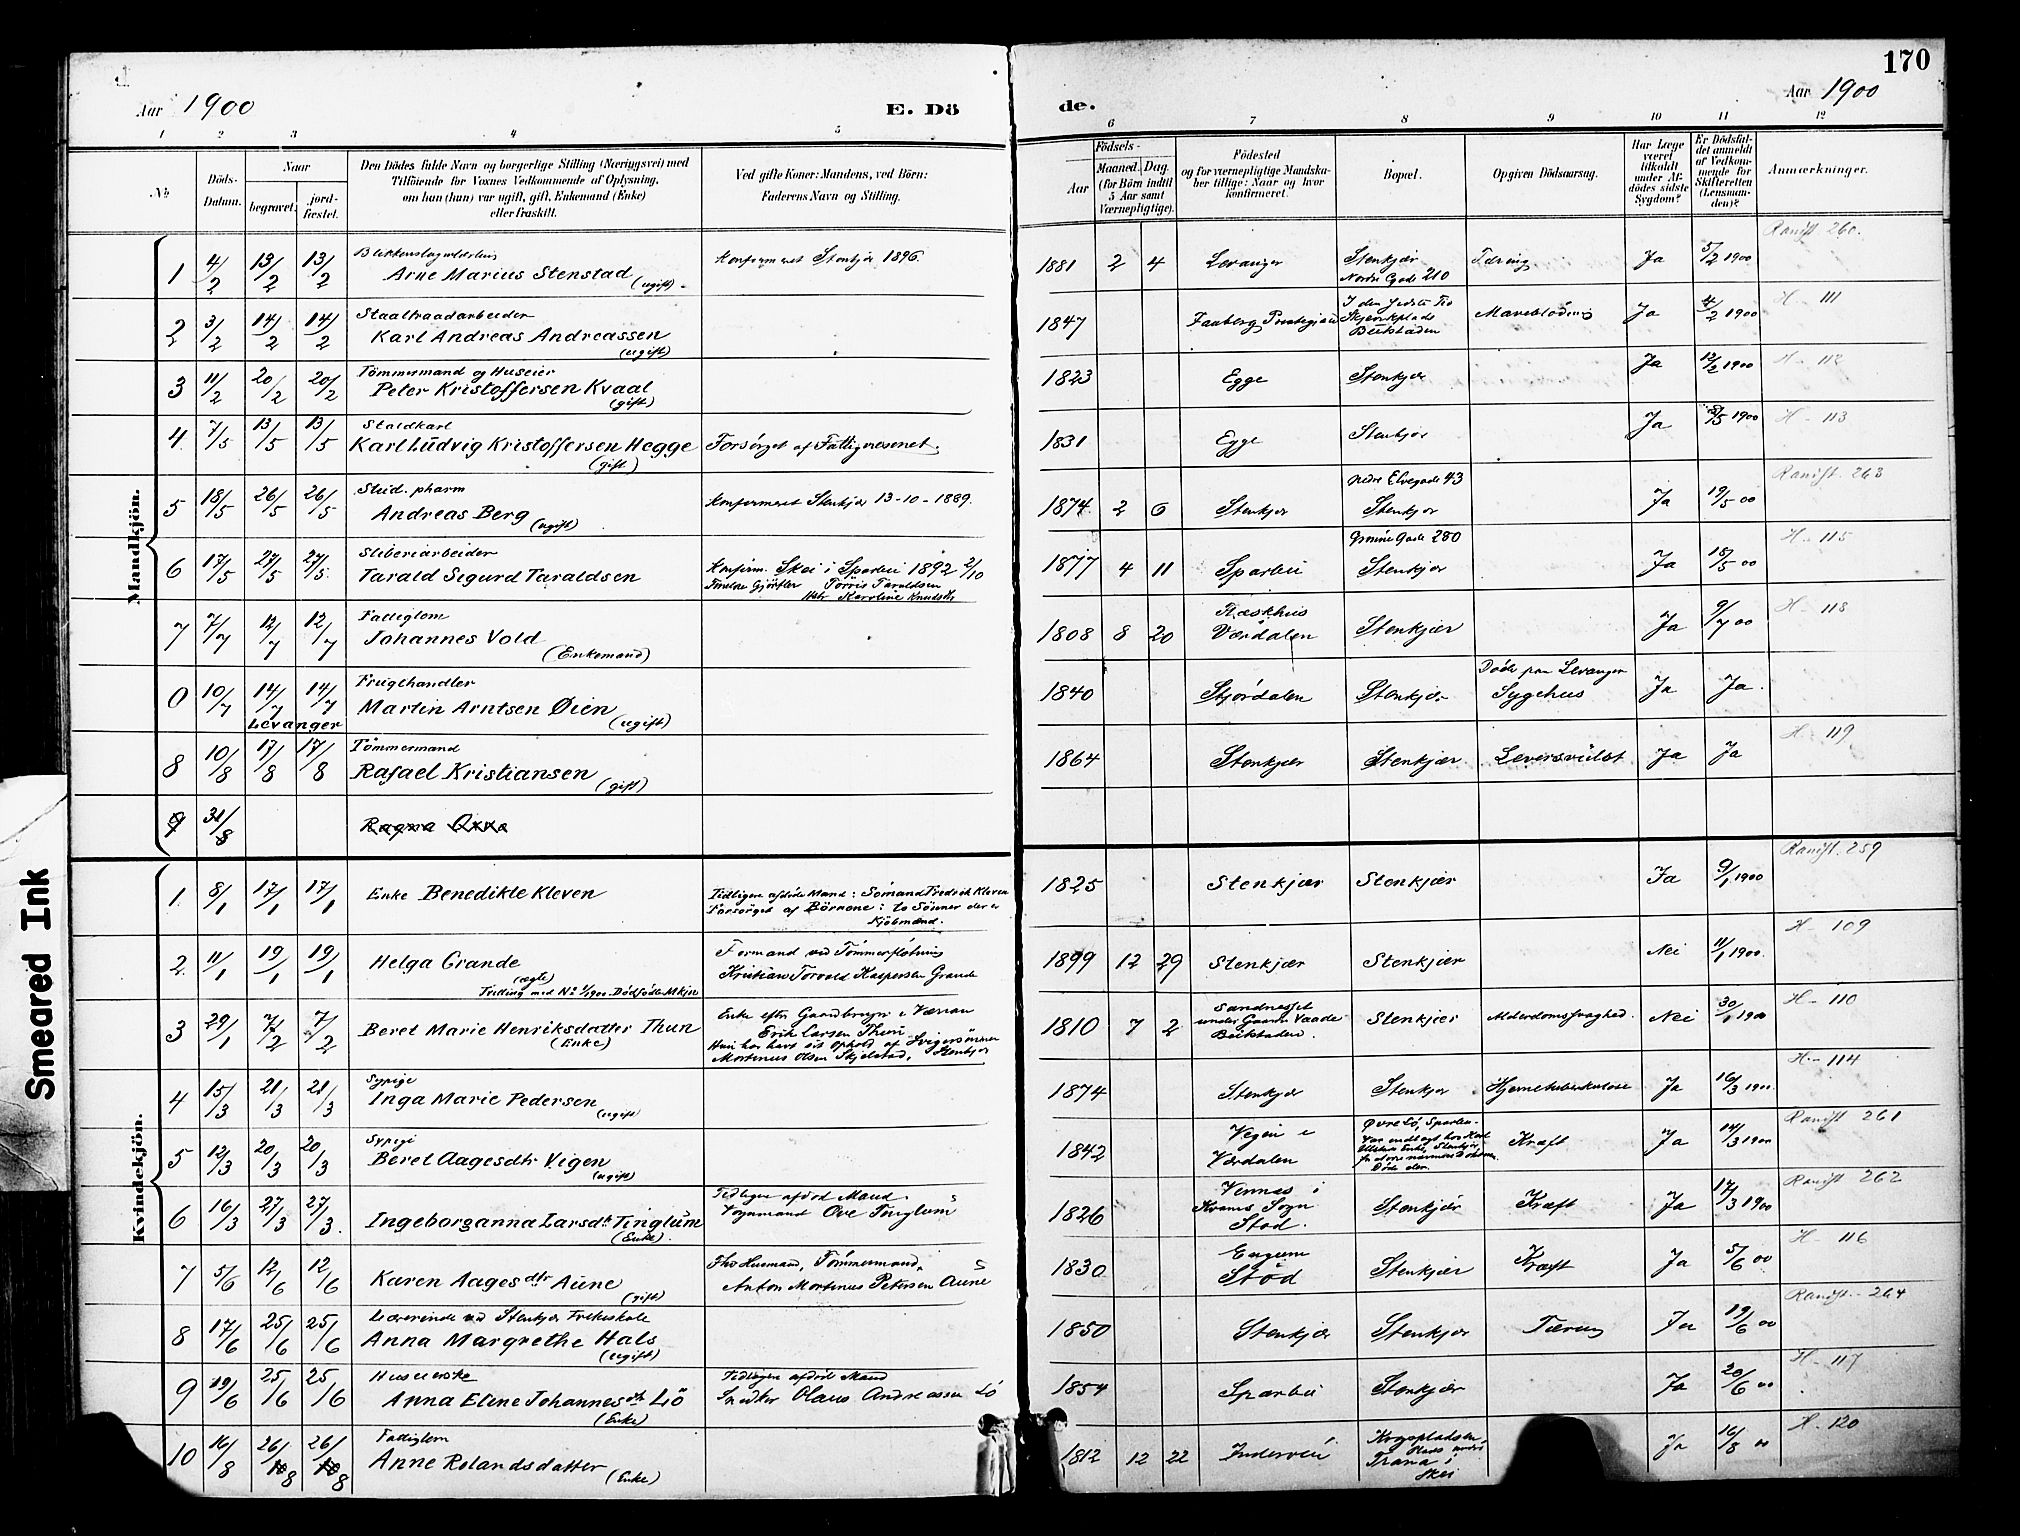 170
Aar 1900
E. Dö
de.
Aar 1900
1 2 3 4 5 6 7 8 9 10 11 12
No
Döds-Datum.
Naar
begravet.
jordfæstet.
Den Dödes fulde Navn og borgerlige Stilling (Næringsvei) med
Tilföiende for Voxnes Vedkommende af Oplysning,
om han (hun) var ugift, gift, Enkemand (Enke)
eller fraskilt.
Ved gifte Koner: Mandens, ved Börn:
Faderens Navn og Stilling.
Födsels-
Aar
Maaned. Dag.
(for Börn indtil
5 Aar samt
Værnepligtige).
Födested
og for værnepligtige Mandska-
ber tillige: Naar og hvor
konfirmeret.
Bopæl.
Opgiven Dödsaarsag.
Har Læge
været
tilkaldt
under Af-
dödes sidste
Sygdom?
Er Dödsfal-
det anmeldt
af Vedkom-
mende for
Skifteretten
(Lensman-
den)?
Anmærkninger.
Mandkjön.
1 4/2 13/2 13/2 Arne Marius Stenstad (ugift) Konfirmeret Stenkjær 1896. 1881 2 4 Levanger Stenkjær Nordre Gade 210 Tæring Ja 5/2 1900 Ranift 260.
2 3/2 14/2 14/2 Staaltraadarbeider Karl Andreas Andreassen (ugift) 1847 Faaberg Præstegjæld Ja 4/2 1900 H - 111
3 11/2 20/2 20/2 Tömmermand og Huseier Peter Kristoffersen Kvaal (gift) 1823 Egge Stenkjær Ja 12/2 1900 H - 112
4 7/5 13/5 13/5 Staldkarl Karl Ludvig Kristoffersen Hegge (gift) Forsörget af Fattigvæsenet. 1831 Egge Stenkjær Ja 1900 H - 113
5 18/5 26/5 26/5 Stud. pharm Andreas Berg (ugift) Konfirmeret Stenkjær 13-10-1889. 1874 2 6 Stenkjær nedre Elvegade 43 Stenkjær Ja 19/5 00 Ranift. 263
6 17/5 27/5 27/5 Sliberiarbeider Tarald Sigurd Taraldsen Konfirm. Skei i Sparbu 1892 2/10
Törris Taraldsen
Karoline Knudsdtr 1877 4 11 Sparbu Gade 280 Stenkjær Ja 18/5 00 H - 115
7 7/7 12/7 12/7 Fattiglem Johannes Vold (Enkemand) 1808 8 20 Værdalen Stenkjær Ja 9/7 00 H - 118
0 10/7 14/7 14/7 Levanger Frugthandler Martin Arntsen Øien (ugift) 1840 Stjördalen Stenkjær Döde paa Levanger Sygehus Ja Ja.
8 10/8 17/8 17/8 Tömmermand Rafael Kristiansen (gift) 1864 Stenkjær Stenkjær Leversvulst Ja Ja H - 119
9 31/8 Ragna
Kvindekjön.
1 8/1 17/1 17/1 Enke Benedikte Kleven Tidligere afdöde Mand: Sömand Fredrik Kleven
Forsörget af Börnene: to Sönner der er
Kjöbmænd. 1825 Stenkjær Stenkjær Ja 9/1 1900 Ranift. 259
2 11/1 19/1 19/1 Helga Grande (ægte)
Tvilling med No 1/1900 Dödfödte Mkjn Formand ved Tömmerflötning
Kristian Torvald Kaspersen Grande 1899 12 29 Stenkjær Stenkjær Nei 11/1 1900. H - 109
3 29/1 7/2 7/2 Beret Marie Henriksdatter Thun (Enke) Enke efter Gaardbruger i Værran
Erik Larsen Thun
Hun har havt sit Ophold af Svigersönnen
Mortinus Olsen Skjelstad, Stenkjær 1810 7 2 Sandnesset
under Gaarden Vaade
Beitstaden. Stenkjær Alderdomssvaghed. Nei 30/1 1900 H - 110
4 15/3 21/3 21/3 Sypige Inga Marie Pedersen (ugift) 1874 Stenkjær Stenkjær Hjernetuberkulose Ja 16/3 1900. H - 114
5 12/3 20/3 20/3 Sypige Beret Aagesdtr Vigen (ugift) 1842 Vegin i Værdalen Øvre Lö, Sparbu.
Döde der. Kræft Ja 14/3 1900 Ranift 261
6 16/3 27/3 27/3. Ingeborganna Larsdtr Tinglum (Enke). Tidligere afdöd Mand.
Vognmand Ove Tinglum 1826 Vinnæs i
Kvams Sogn
Stod. Stenkjær Kræft Ja 17/3 1900 Ranift 262
7 5/6 12/6 12/6 Karen Aagesdtr Aune (gift) Tömmermand,
Anton Mortinus Petersen Aune 1830 Stod Stenkjær Kræft Ja 5/6 00 H - 116
8 17/6 25/6 25/6 Lærerinde ved Stenkjær Folkeskole Anna Margrethe Hals (ugift) 1850 Stenkjær Stenkjær Tæring Ja 19/6 00 Ranift. - 264
9 19/6 25/6 25/6 Anna Eline Johannesdtr Lö (Enke) Tidligere afdöd Mand
Snedker Olaus Andreassen Lö 1854 Sparbu Stenkjær Ja 20/6 00 H - 117
10 16/8 26/8 26/8 Fattiglem Anne Rolandsdatter (Enke) 1812 12 22 Inderöen Ja 16/8 00 H - 120
Smeared Ink